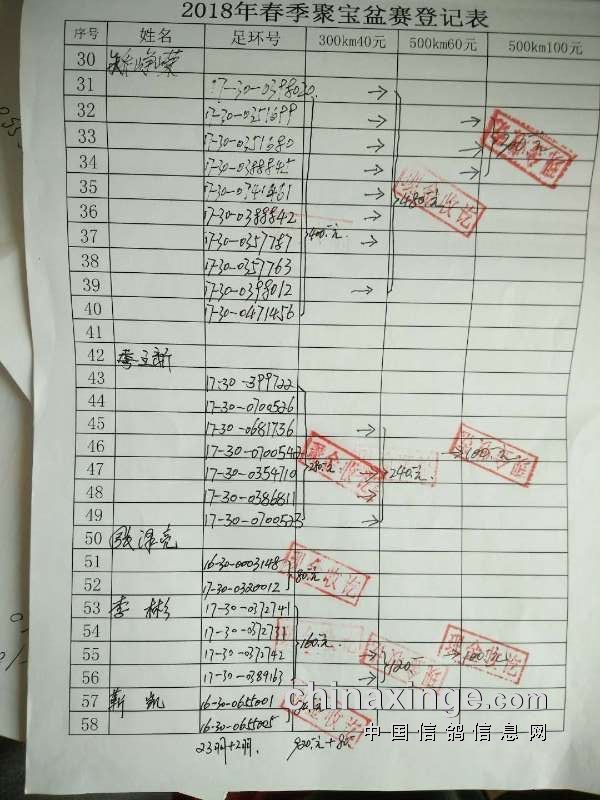 2018年春季聚宝盆赛登记表
序号 姓名 足环号 300km40元 500km60元 500km100元
30
31 17-30-0398020 →
32 17-30-0351699 → →
33 17-30-0351680 → →
34 17-30-0388845 → →
35 17-30-0341461 → 480元
36 17-30-0388842 →
37 17-30-0357787 400元 →
38 17-30-0357763
39 17-30-0398012 →
40 17-30-0471456
41
42
43 17-30-399722
44 17-30-0700526
45 17-30-0681736 →
46 17-30-0700542 → 100元
47 17-30-0354710 280元 → 240元
48 17-30-0386811 →
49 17-30-0700523 →
50
51 16-30-0003148 80元
52 17-30-0320012
53 李彬 17-30-0372741
54 17-30-0372737 160元
55 17-30-0372742 → → 100元
56 17-30-0389163 → 120元
57 靳凯 16-30-0655001
58 16-30-0655005
23羽+2羽. 920元+80元
chinaxinge.com
中国信鸽信息网